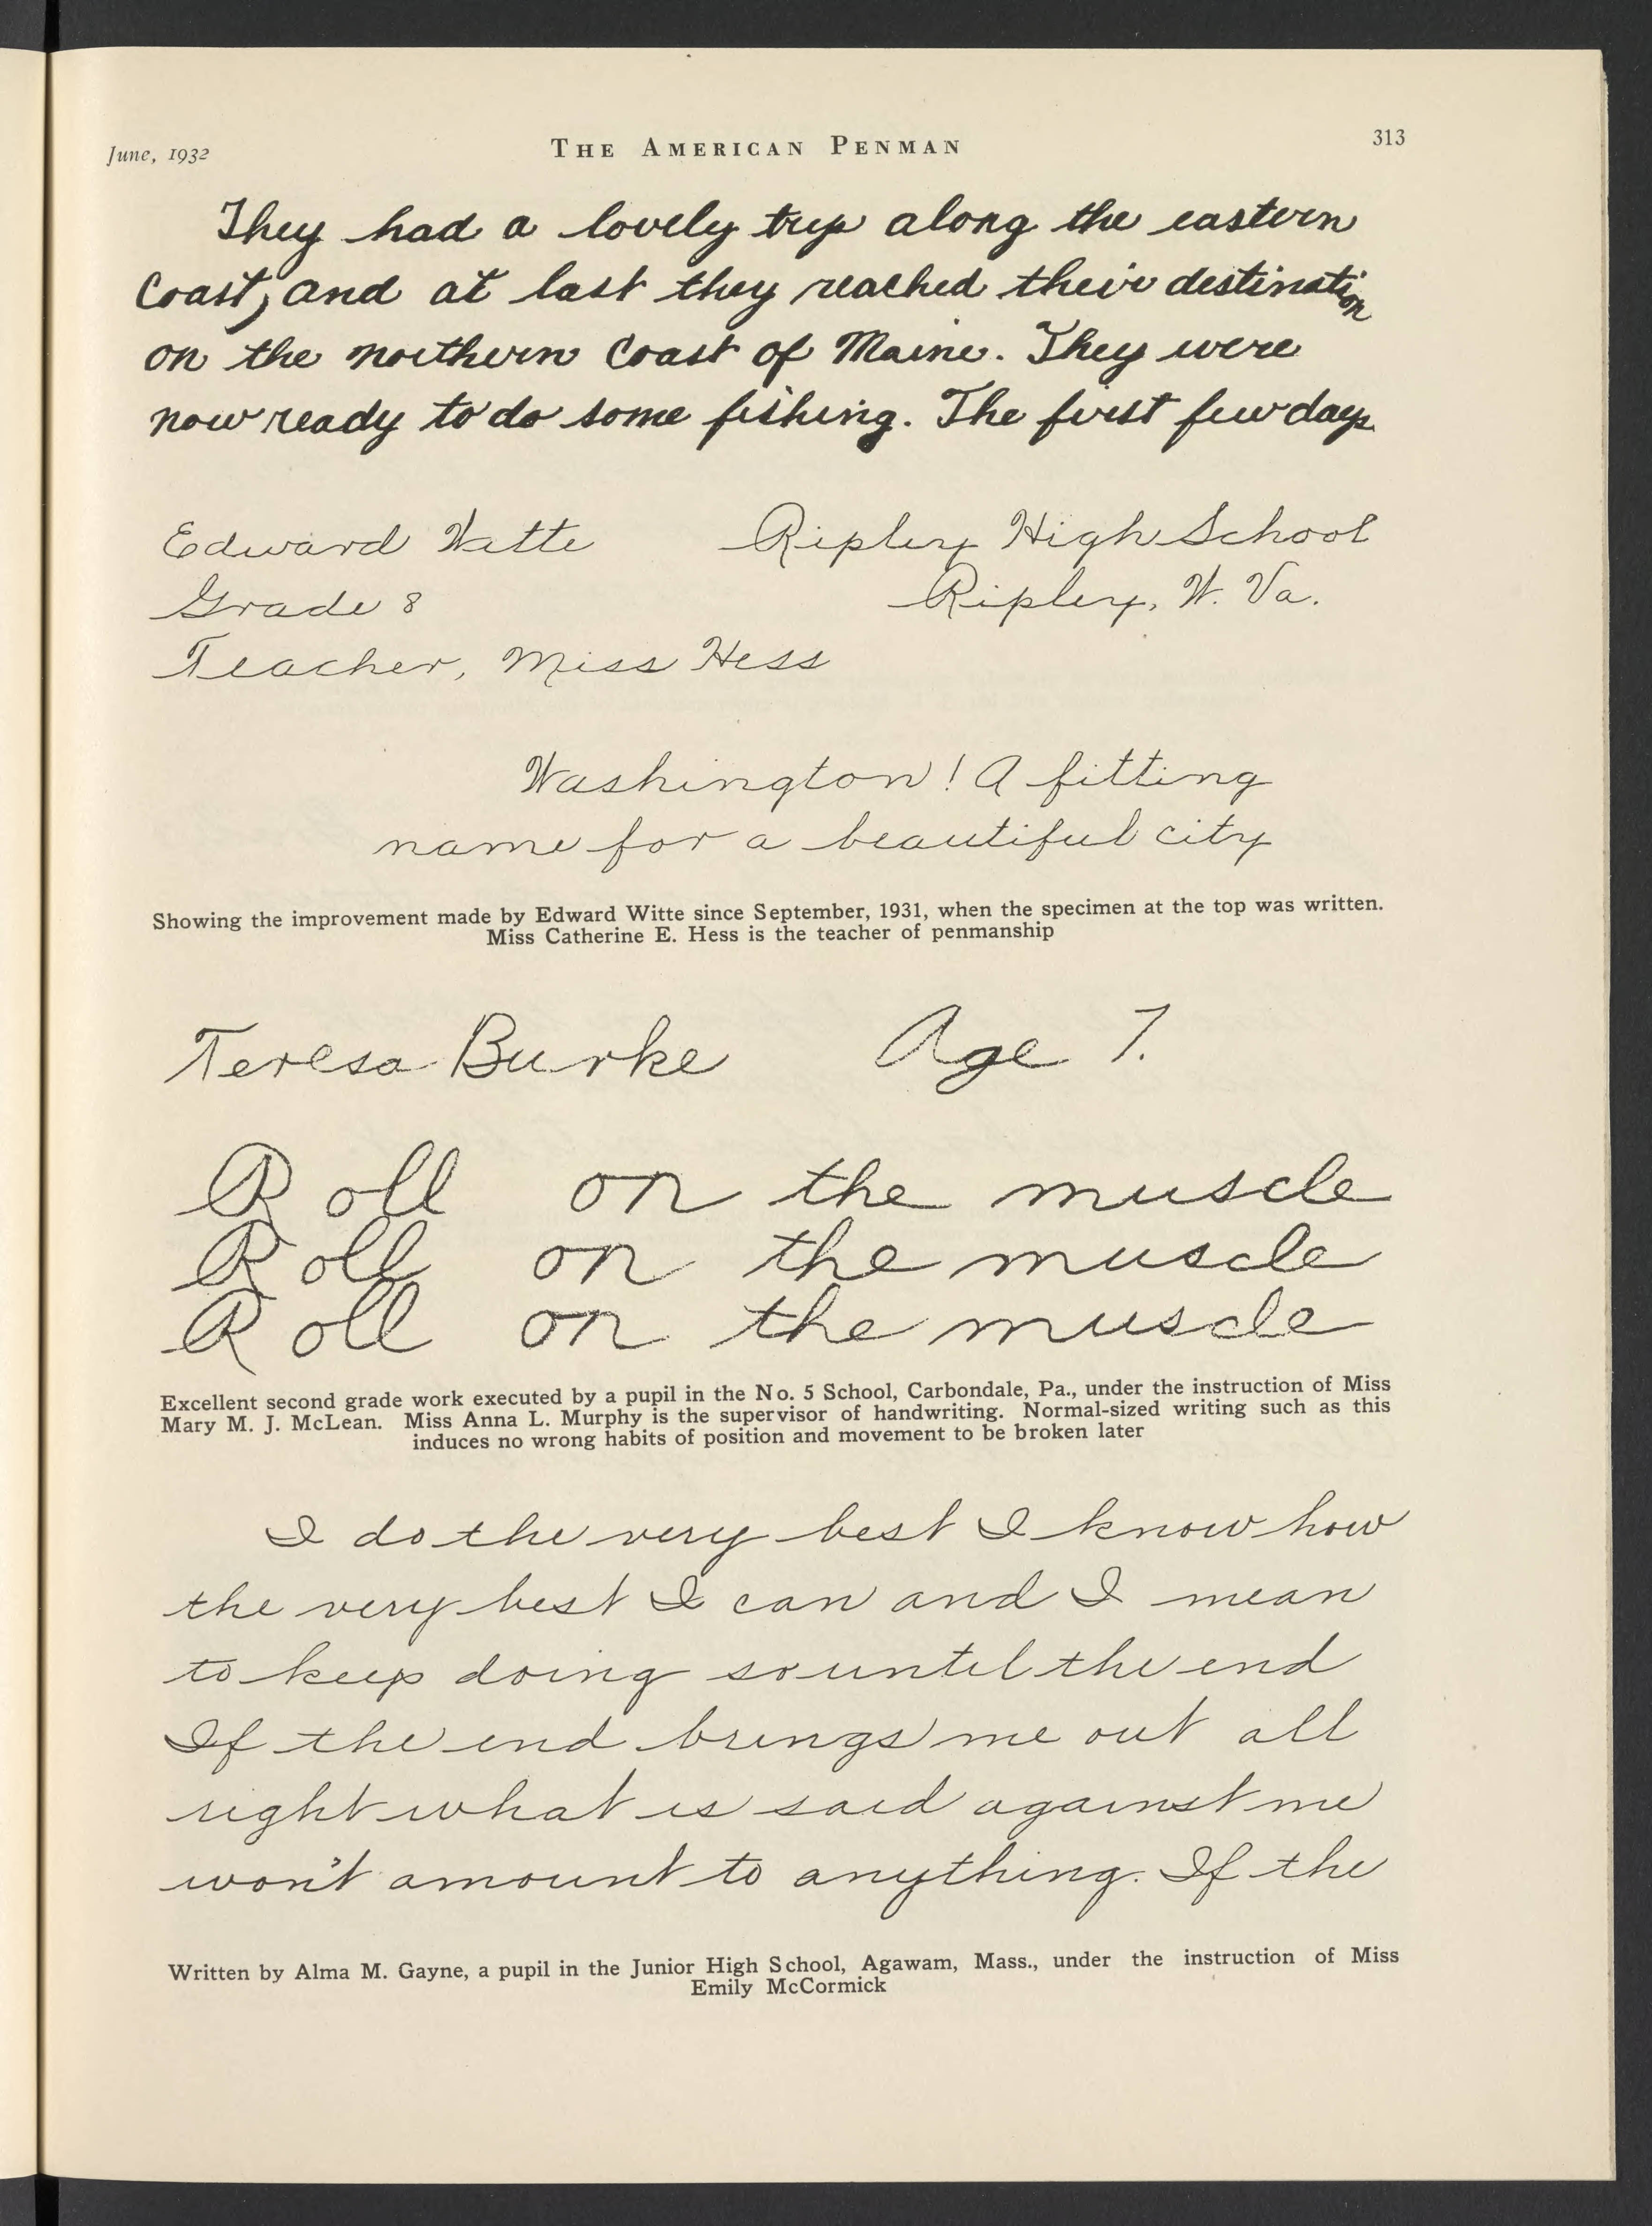 June, 1932 THE AMERICAN PENMAN 313
They had a lovely trip along the eastern
Coast, and at last they reached their destination
on the northern Coast of Maine. They were
now ready to do some fishing. The first few days.
Edward Witte Ripley High School
Grade 8 Ripley, W. Va.
Teacher, Miss Hess
Washington! A fitting
name for a beautiful city
Showing the improvement made by Edward Witte since September, 1931, when the specimen at the top was written.
Miss Catherine E. Hess is the teacher of penmanship
Teresa Burke Age 7.
Roll on the muscle
Roll on the muscle
Roll on the muscle
Excellent second grade work executed by a pupil in the No. 5 School, Carbondale, Pa., under the instruction of Miss
Mary M. J. McLean. Miss Anna L. Murphy is the supervisor of handwriting. Normal-sized writing such as this
induces no wrong habits of position and movement to be broken later
I do the very best I know how
the very best I can and I mean
to keep doing so until the end
If the end brings me out all
right what is said against me
won't amount to anything. If the
Written by Alma M. Gayne, a pupil in the Junior High School, Agawam, Mass., under the instruction of Miss
Emily McCormick